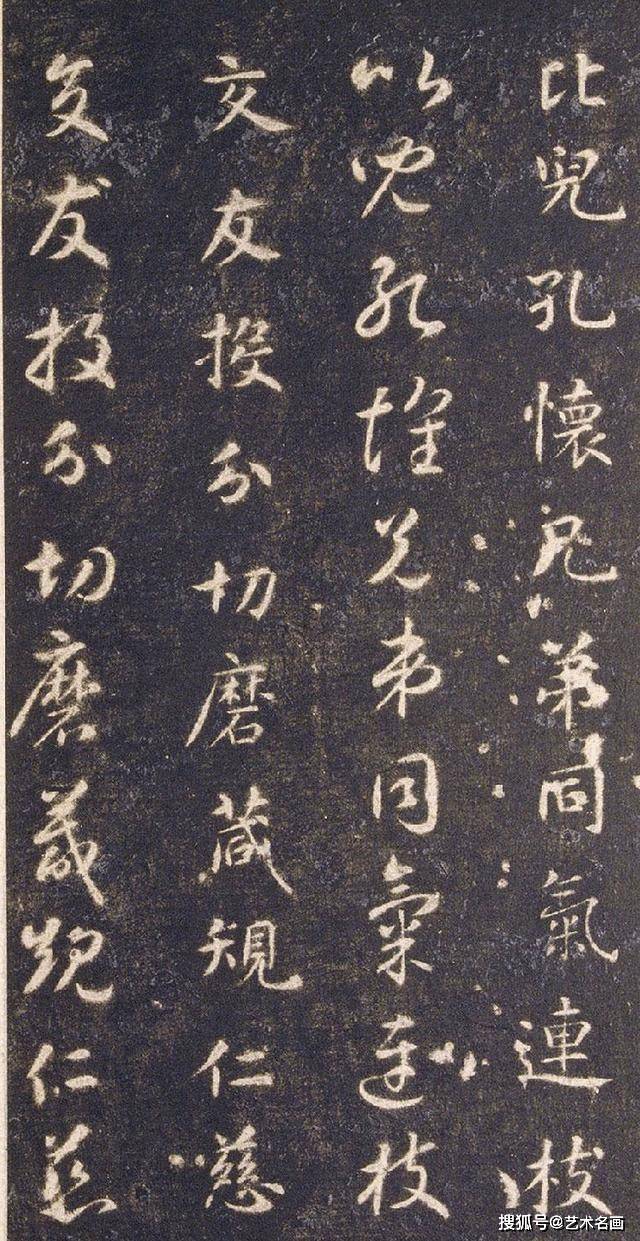 比兒孔懷兄弟同氣連枝
比兒孔懷兄弟同氣連枝
交友投分切磨葴規仁慈
交友投分切磨葴規仁慈
搜狐号@艺术名画